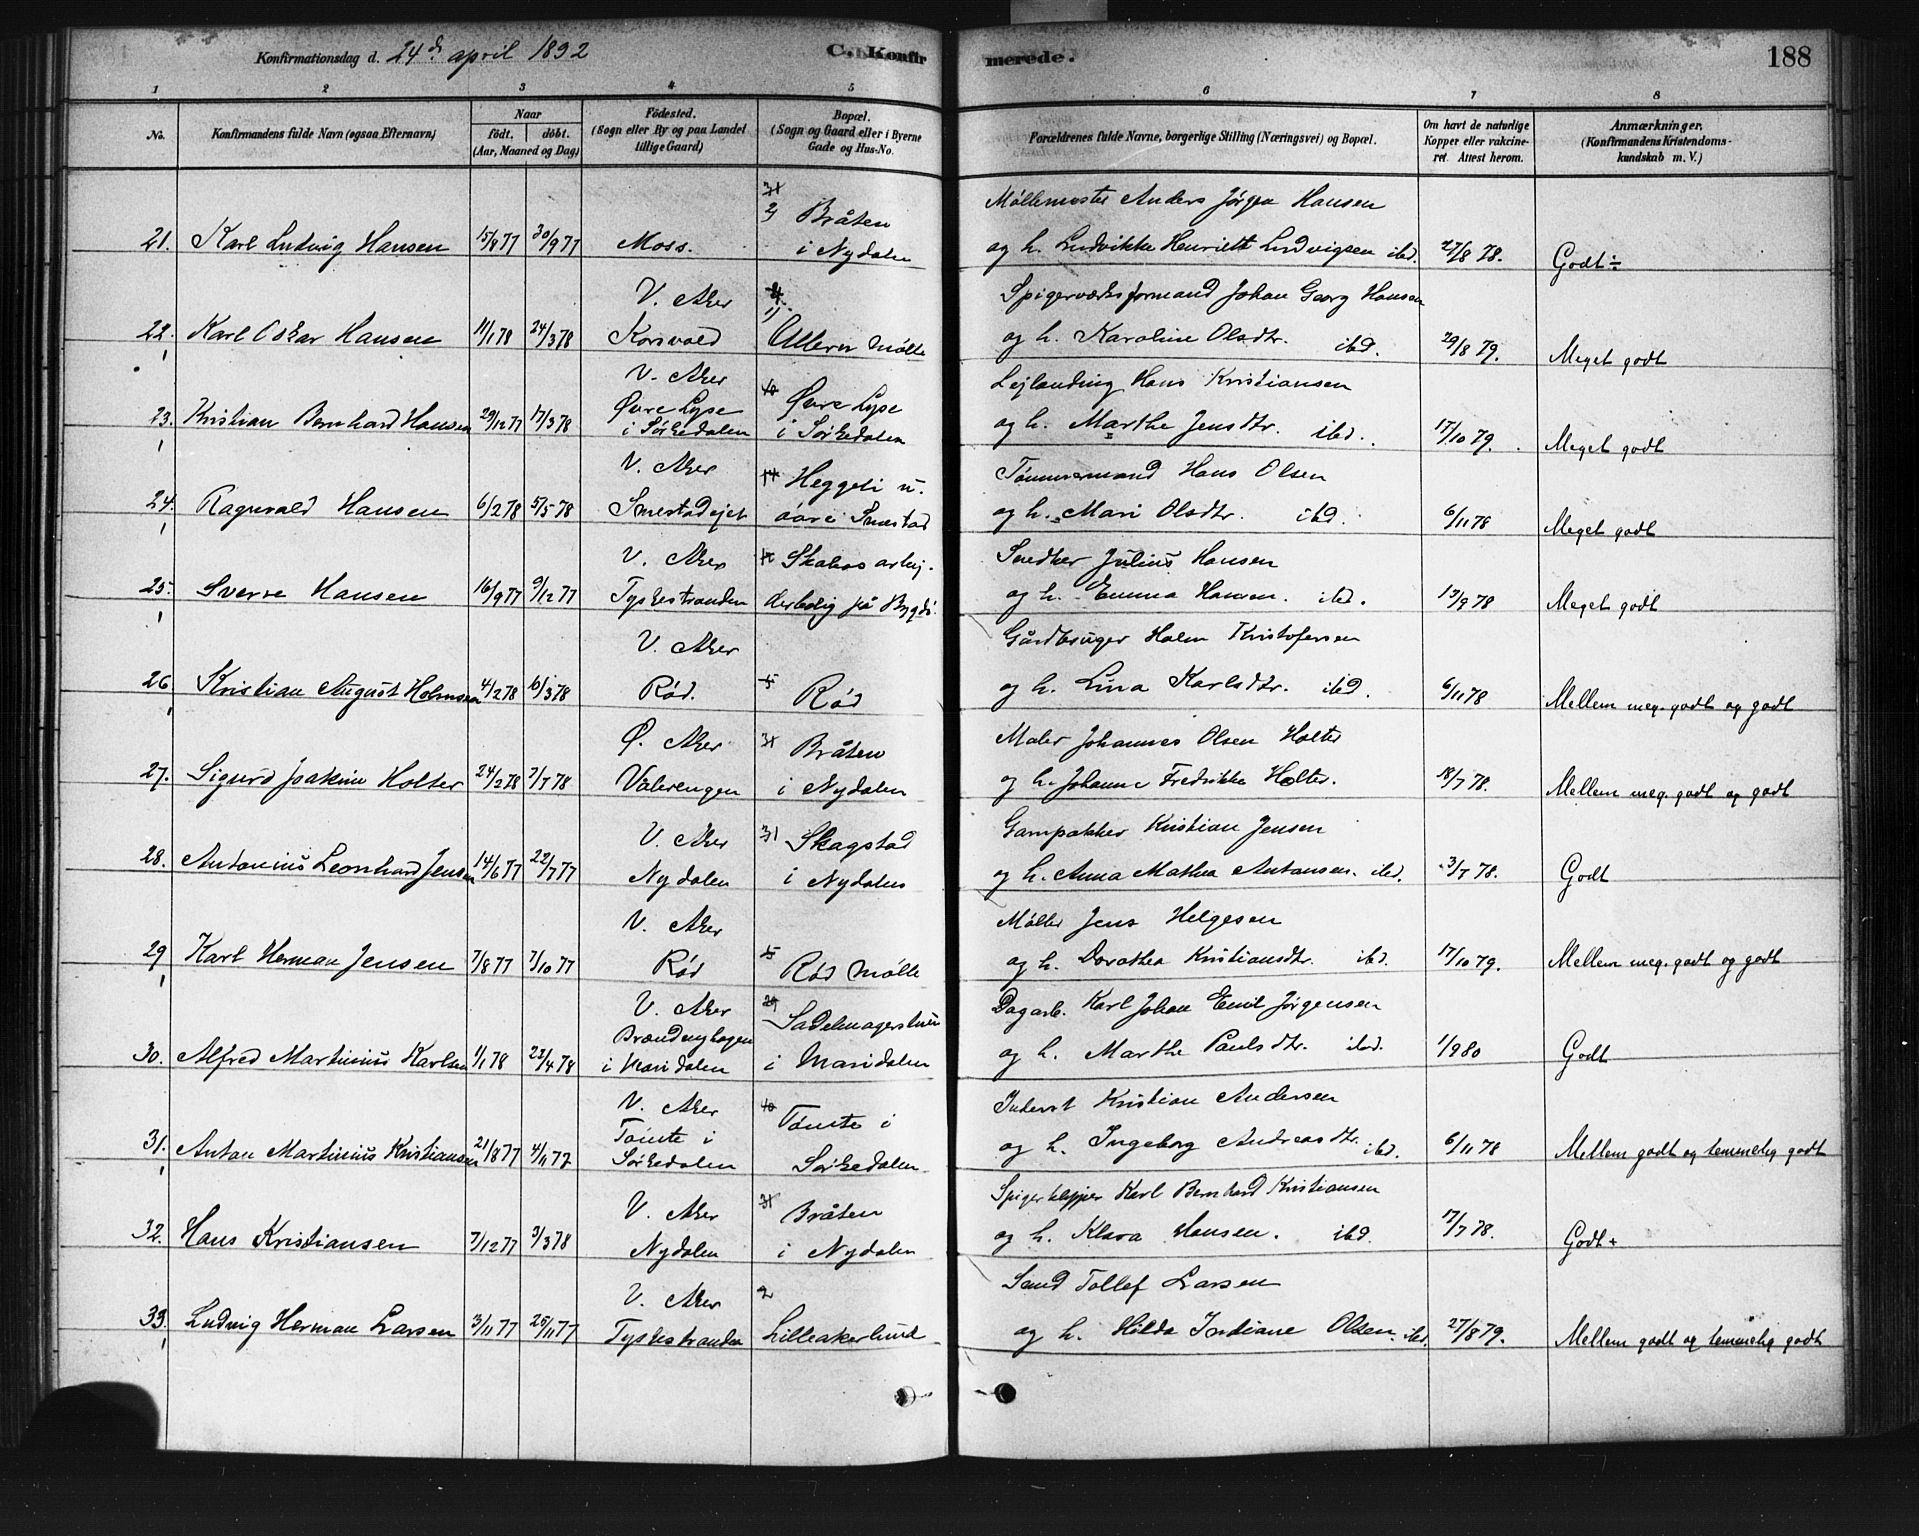 Konfirmationsdag d. 24de april 1892
C. Konfirmerede.
188
1 2 3 4 5 6 7 8
No. Konfirmandens fulde Navn (ogsaa Efternavn) Naar født, døbt. (Aar, Maaned og Dag) Fødested. (Sogn eller By og paa Landet tillige Gaard) Bopæl. (Sogn og Gaard eller i Byerne Gade og Hus-No. Forældrenes fulde Navne, borgerlige Stilling (Næringsvei) og Bopæl. Om havt de naturlige Kopper eller vakcineret. Attest herom. Anmærkninger. (Konfirmandens Kristendomskundskab m. V.)
21. Karl Ludvig Hansen 15/8 77 30/9 77 Moss. Bråten i Nydalen
Møllemester Anders Jørgen Hansen
og h. Ludvikke Henriette Ludvigsen ibd. 27/8 78. Godt ÷
22. Karl Oskar Hansen 11/1 78 24/3 78 V. Aker Korsvold Ullern Mølle
Spigerværksformand Johan Georg Hansen
og h. Karoline Olsdtr. ibd. 29/8 79. Meget godt
23. Kristian Bernhard Hansen 29/12 77 17/3 78 V. Aker Øvre Lyse i Sørkedalen Øvre Lyse i Sørkedalen
Lejlænding Hans Kristiansen
og h. Marthe Jensdtr. ibd. 17/10 79. Meget godt
24. Ragnvald Hansen 6/2 78 5/5 78 V. Aker Smestadejet Heggeli u. Smestad
Tømmermand Hans Olsen
og h. Mari Olsdtr. ibd. 6/11 78 Meget godt
25. Sverre Hansen 16/9 77 9/12 77 V. Aker Tyskestranden Skabos arbejderbolig på Bygdø
Snedker Julius Hansen
og h. Emma Hansen. ibd. 13/9 78 Meget godt
26. Kristian August Holmsen 4/2 78 10/3 78 V. Aker Rød. Rød
Gårdbruger Holm Kristofersen
og h. Lina Karlsdtr. ibd. 6/11 78 Mellem meg. godt og godt
27. Sigurd Joakim Holter 24/2 78 7/7 78 Ø. Aker Vålerengen 31 Bråten i Nydalen
Maler Johannes Olsen Holter
og h. Johanne Fredrikke Holter. 18/7 78. Mellem meg. godt og godt
28. Antonius Leonhard Jensen 14/6 77 22/7 77 V. Aker Nydalen 31 Skagstad i Nydalen
Garnpakker Kristian Jensen
og h. Anna Mathea Antonsen. ibd. 3/7 78. Godt
29 Karl Herman Jensen 7/8 77 7/10 77 V. Aker Rød Rød Mølle
Møller Jens Helgesen
og h. Dorothea Kristiansdtr. ibd. 17/10 79. Mellem meg. godt og godt
30. Alfred Martinius Karlsen 1/1 78 23/4 78 V. Aker Brændenghagen i Maridalen Sadelmagerstuen i Maridalen
Dagarb. Karl Johan Emil Jørgensen
og h. Marthe Paulsdtr. ibd. 1/9 80 Godt
31. Anton Martinius Kristiansen 21/8 77 4/11 77 V. Aker Tømte i Sørkedalen 40 Tømte i Sørkedalen
Inderst Kristian Andersen
og h. Ingeborg Andreasdtr. ibd. 6/11 78 Mellem godt og temmelig godt
32. Hans Kristiansen 7/12 77 3/3 78 V. Aker Nydalen 31 Bråten i Nydalen
Spigerklipper Karl Bernhard Kristiansen
og h. Klara Hansen. ibd. 17/7 78. Godt +
33. Ludvig Herman Larsen 3/11 77 25/11 77 V. Aker Tyskestranden 2 Lilleakerlund
Smed Tollef Larsen
og h. Hilda Indiane Olsen. ibd. 27/8 79. Mellem godt og temmelig godt